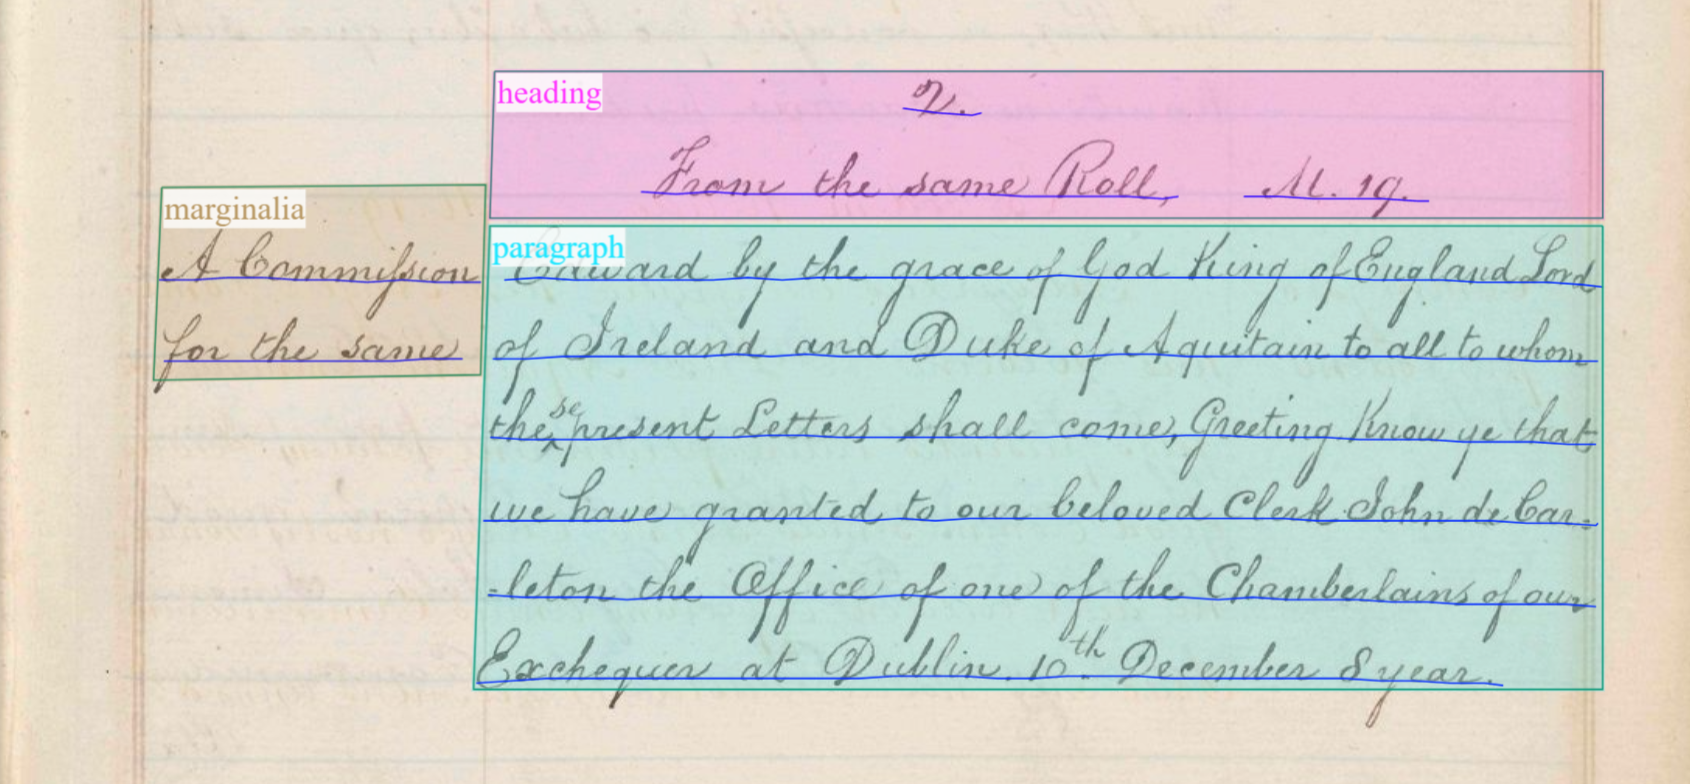 heading
2.
From the same Roll, M. 19.
marginalia
A Commission
for the same
paragraph
Edward by the grace of God King of England Lord
of Ireland and Duke of Aquitain to all to whom
these present Letters shall come, Greeting Know ye that
we have granted to our beloved Clerk John de Car-
-leton the Office of one of the Chamberlains of our
Exchequer at Dublin. 10th December 8 year.